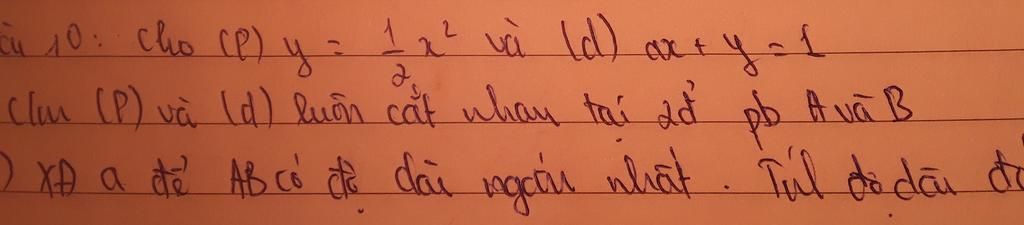 10: Cho (P) y = 1/2 x² và (d) ax + y = 1
Clm (P) và (d) luôn cắt nhau tại 2đ' pb A và B
) XĐ a để AB có độ dài ngắn nhất. Tính độ dài đó